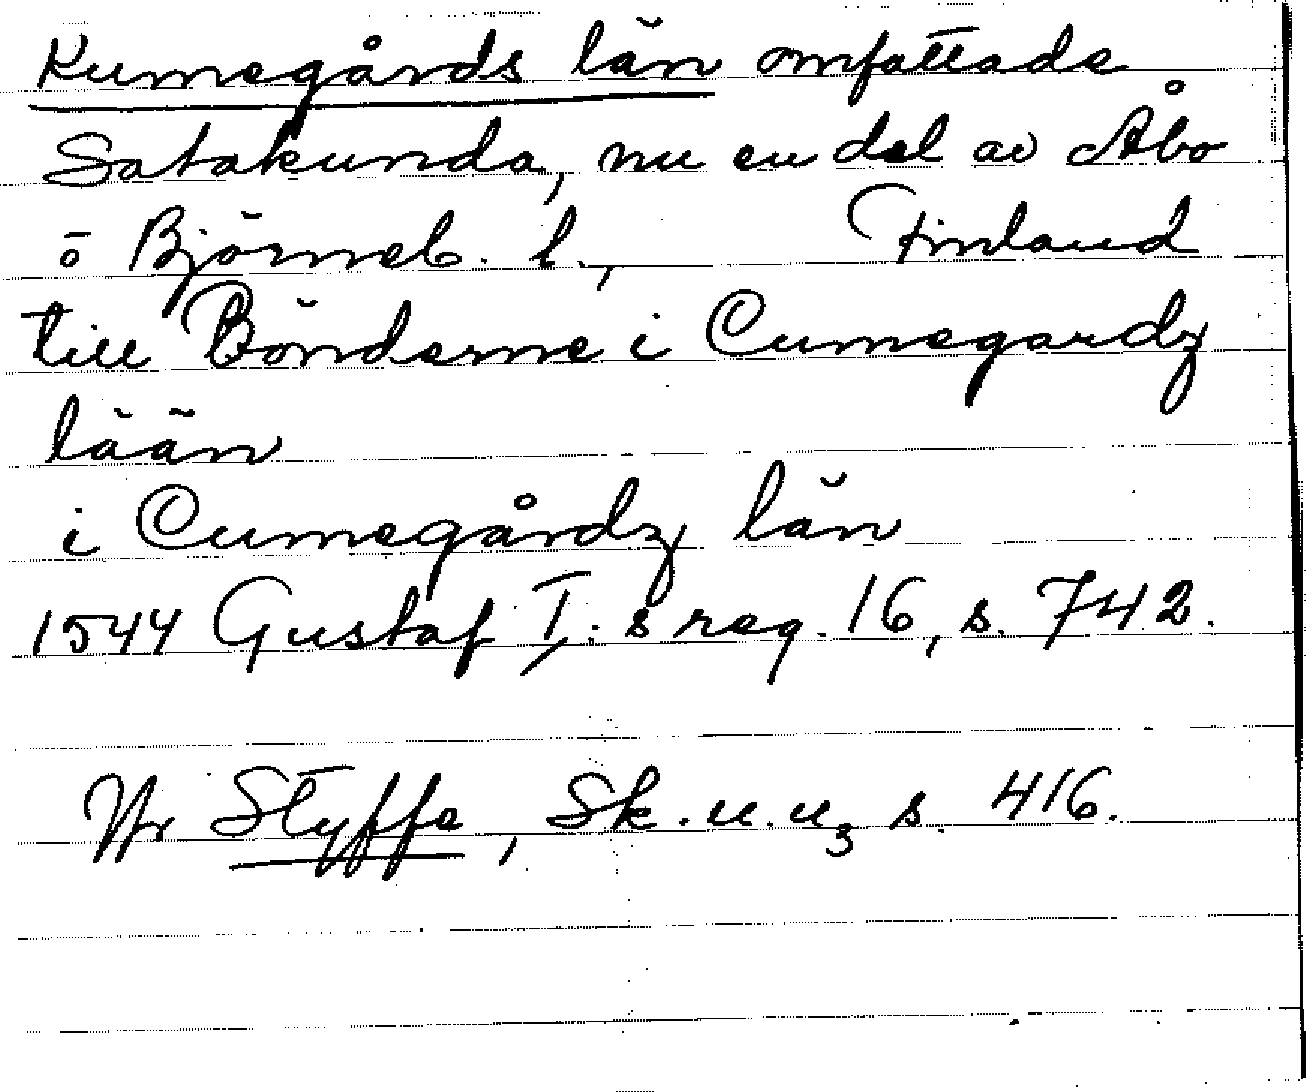 Kumegårds län omfattade
Satakunda, nu en del av Åbo
o Björneb. l., Finland
till Bönderne i Cumegardz
lään
i Cumegårdz län
1544 Gustaf I:s reg. 16, s. 742.
Jfr Styffe, Sk.u.u₃ s. 416.